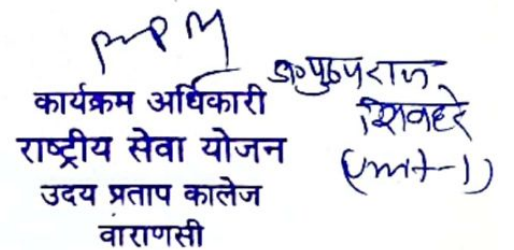 कार्यक्रम अधिकारी
राष्ट्रीय सेवा योजन
उदय प्रताप कालेज
वाराणसी
डा० पुष्पराज
शिवहरे
(Unit-1)